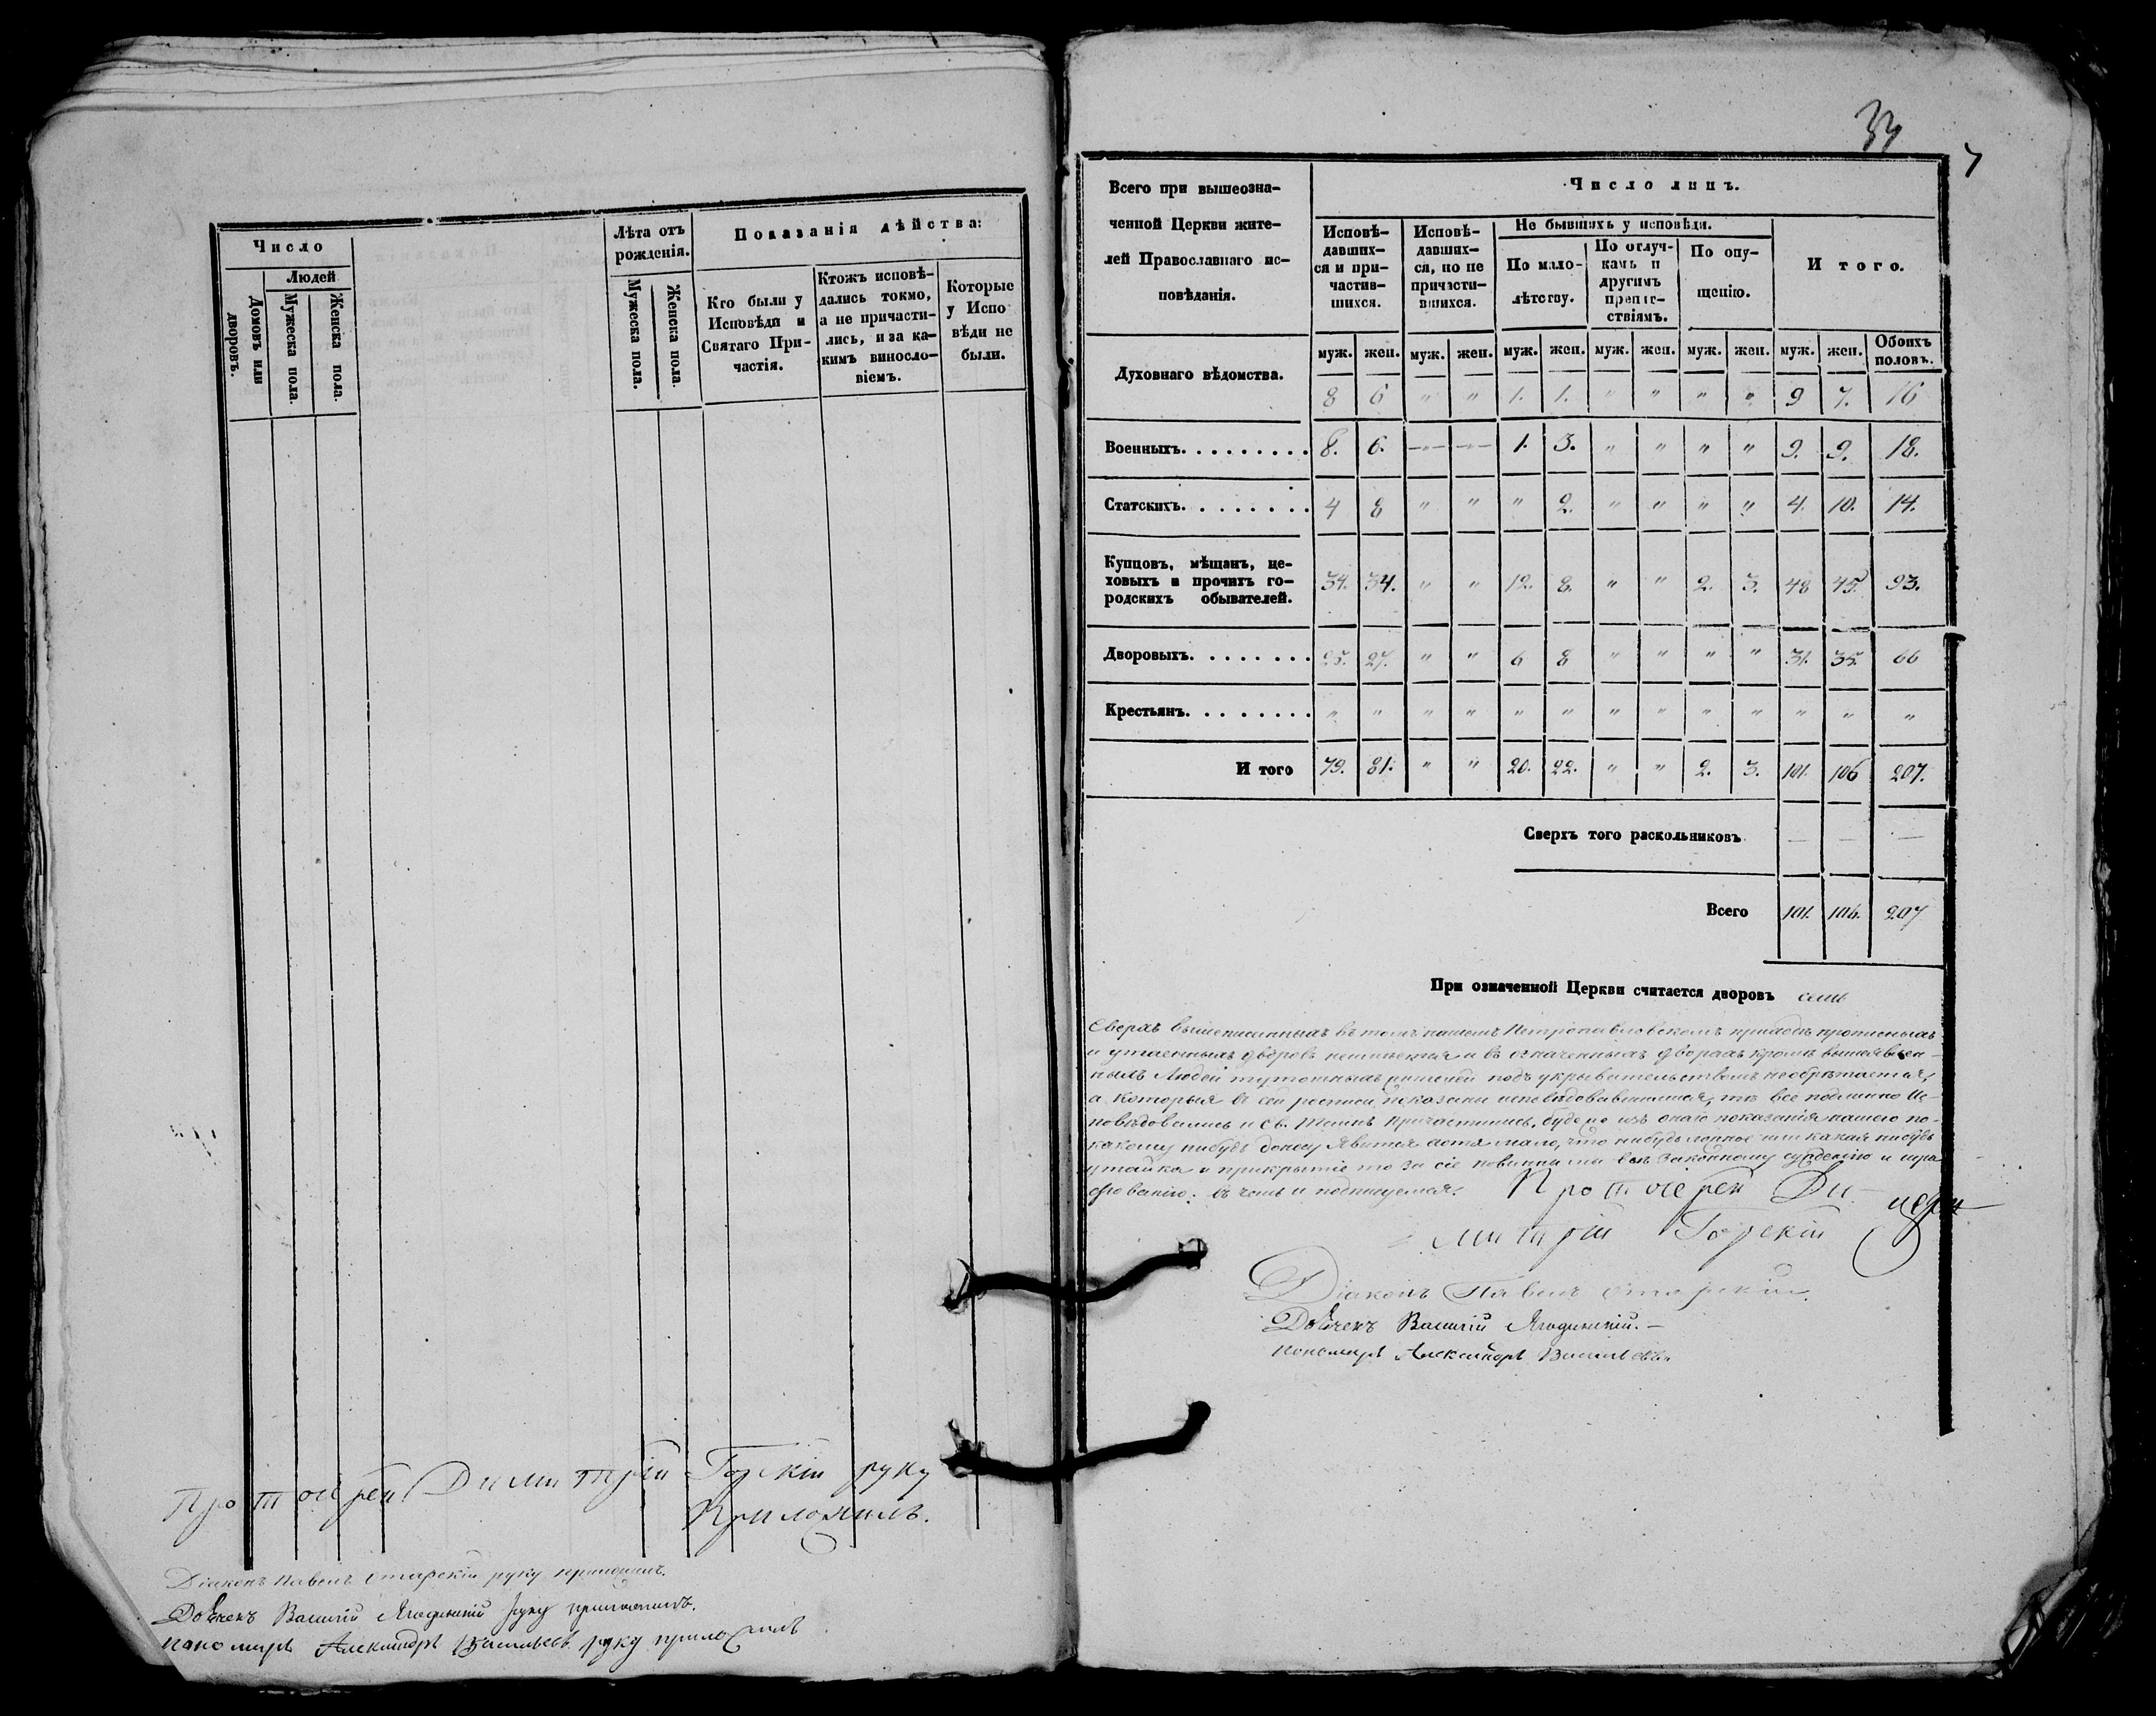 Число
Людей
Домовъ или дворовъ.
Мужеска пола.
Женска пола.
Лѣта отъ рожденія.
Мужеска пола.
Женска пола.
Показанія дѣйства:
Кто были у
Исповѣди и
Святаго При-
частія.
Ктожъ исповѣ-
дались токмо,
а не причасти-
лись, и за ка-
кимъ винosло-
віемъ.
Которые
у Испо
вѣди не
были.
Протоіерей Димитрій Горскій руку
Приложилъ.
Діаконъ Павелъ руку приложилъ.
Дьячекъ Василій Ягодинскій руку приложилъ.
Пономарь Александръ Васильевъ руку приложилъ
33
7
Всего при вышеозна-
ченной Церкви жите-
лей Православнаго ис-
повѣданія.
Число лицъ.
Исповѣ-
давших-
ся и при-
частив-
шихся.
Исповѣ-
давших-
ся, но не
причасти-
вшихся.
Не бывшихъ у исповѣди.
По мало-
лѣтству.
По отлуч-
камъ и
другимъ
препят-
ствіямъ.
По опу-
щенію.
И того.
муж. жен. муж. жен. муж. жен. муж. жен. муж. жен. муж. жен. Обоихъ половъ.
Духовнаго вѣдомства. 8 6 " " 1. 1. " " " " 9 7. 16
Военныхъ. 8. 6. — — 1. 3. " " " " 9. 9. 18.
Статскихъ. 4 8 " " " 2. " " " " 4. 10. 14.
Купцовъ, мѣщанъ, це-
ховыхъ и прочихъ го-
родскихъ обывателей.
34. 34. " " 12. 8. " " 2. 3. 48 45. 93.
Дворовыхъ. 25. 27. " " 6 8 " " " " 31. 35. 66
Крестьянъ. " " " " " " " " " " " " "
И того 79. 81. " " 20. 22. " " 2. 3. 101. 106 207.
Сверхъ того раскольниковъ — — —
Всего 101. 106. 207
При означенной Церкви считается дворовъ семь
Сверхъ вышеписанныхъ въ томъ нашемъ Петропавловскомъ приходѣ прописныхъ
и утаенныхъ дворовъ неимѣется и въ означенныхъ дворахъ кромѣ вышеявлен-
ныхъ людей тутошныхъ жителей подъ укрывательствомъ необрѣтается,
а которыя въ сей росписи показаны исповѣдовавшимися, тѣ все подлинно Ис-
повѣдовались и Св. Таинъ Причастились, буде же изъ онаго показанія нашего по
какому нибудь доносу явится хотя мало, что нибудь ложное или какая нибудь
утайка и прикрытіе то за сіе повинны мы законному сужденію и штра
фованію: въ чемъ и подпишуемся. Протоіерей Ди-
митрій Горскій
Діаконъ Павелъ
Дьячекъ Василій Ягодинскій.
Пономарь Александръ Васильевъ